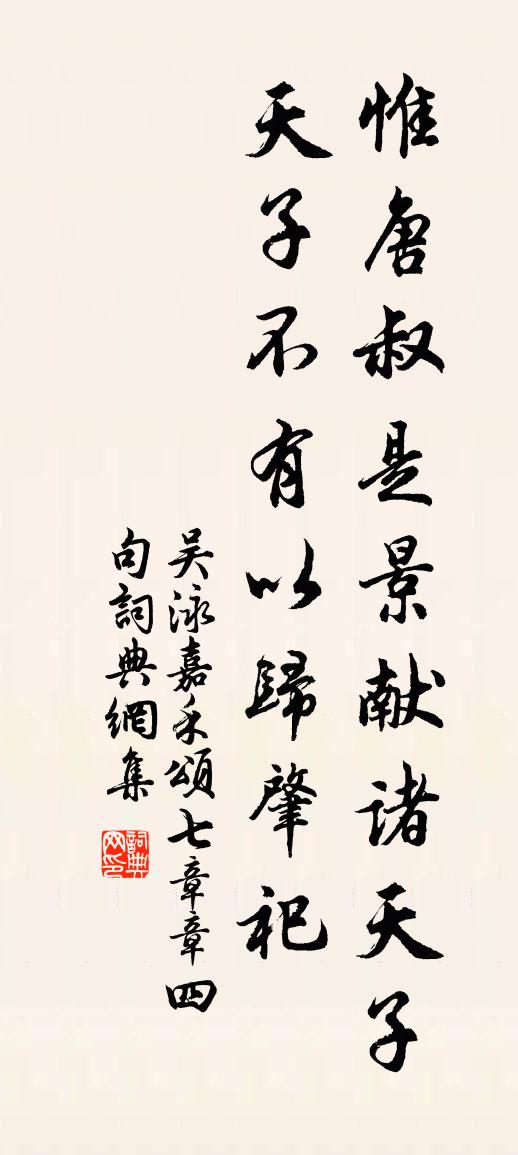 惟唐叔是景献诸天子
天子不有以歸肇祀
吴泳嘉禾頌七章章四
句詞典網集
詞典
网印